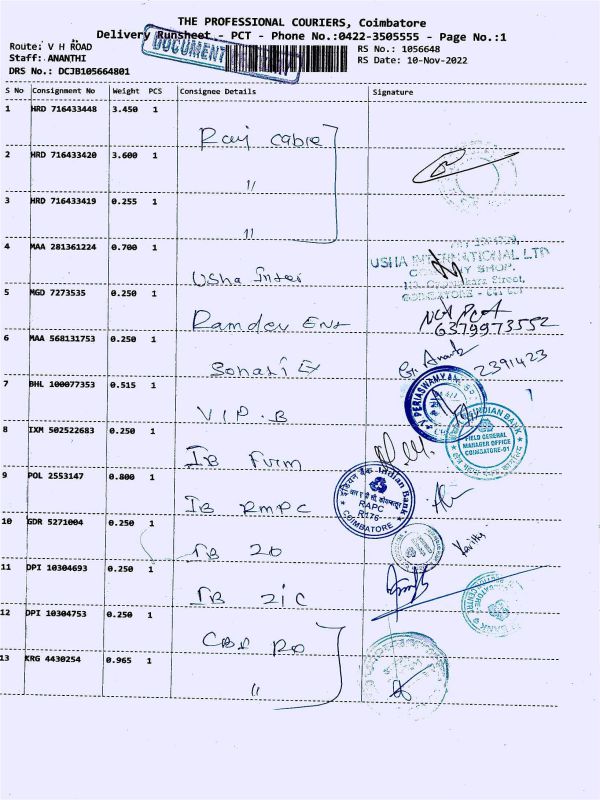 THE PROFESSIONAL COURIERS, Coimbatore
Delivery Runsheet - PCT - Phone No.:0422-3505555 - Page No.:1
Route: V H ROAD
RS No.: 1056648
Staff: ANANTHI
RS Date: 10-Nov-2022
DRS No.: DCJB105664801
DOCUMENT
S No Consignment No Weight PCS Consignee Details Signature
1 HRD 716433448 3.450 1
Raj Cabre
2 HRD 716433420 3.600 1
"
3 HRD 716433419 0.255 1
"
4 MAA 281361224 0.700 1
Usha Inter
USHA INTERNATIONAL LTD
COMPANY SHOP.
5 MGD 7273535 0.250 1
Ramdev Ent
6379973552
6 MAA 568131753 0.250 1
Sonali Ex
G. Anand
2391423
7 BHL 100077353 0.515 1
V.I.P. B
8 IXM 502522683 0.250 1
IB
INDIAN BANK
FIELD GENERAL
MANAGER OFFICE
COIMBATORE-01
9 POL 2553147 0.800 1
IB RMPC
इंडियन बैंक Indian Bank
RAPC
R176
COIMBATORE
10 GDR 5271004 0.250 1
IB ZO
Kavitha
11 DPI 10304693 0.250 1
IB ZIC
12 DPI 10304753 0.250 1
CBI RO
13 KRG 4430254 0.965 1
"